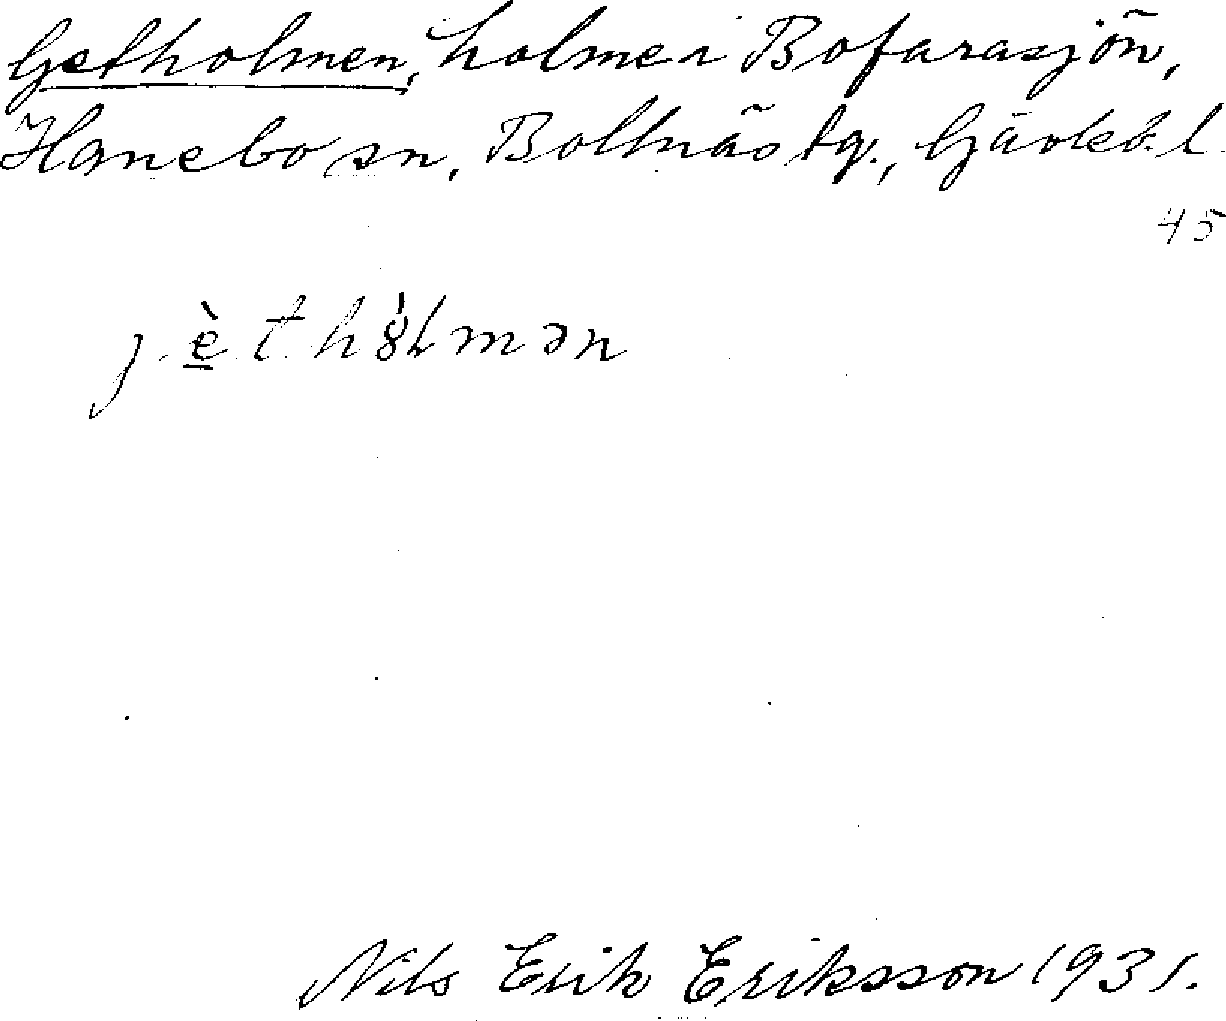 Getholmen, holme i Bofarasjön,
Hanebo sn, Bollnäs tg., Gävleb. l.
45
j è t h o l m ə n
Nils Erik Eriksson 1931.